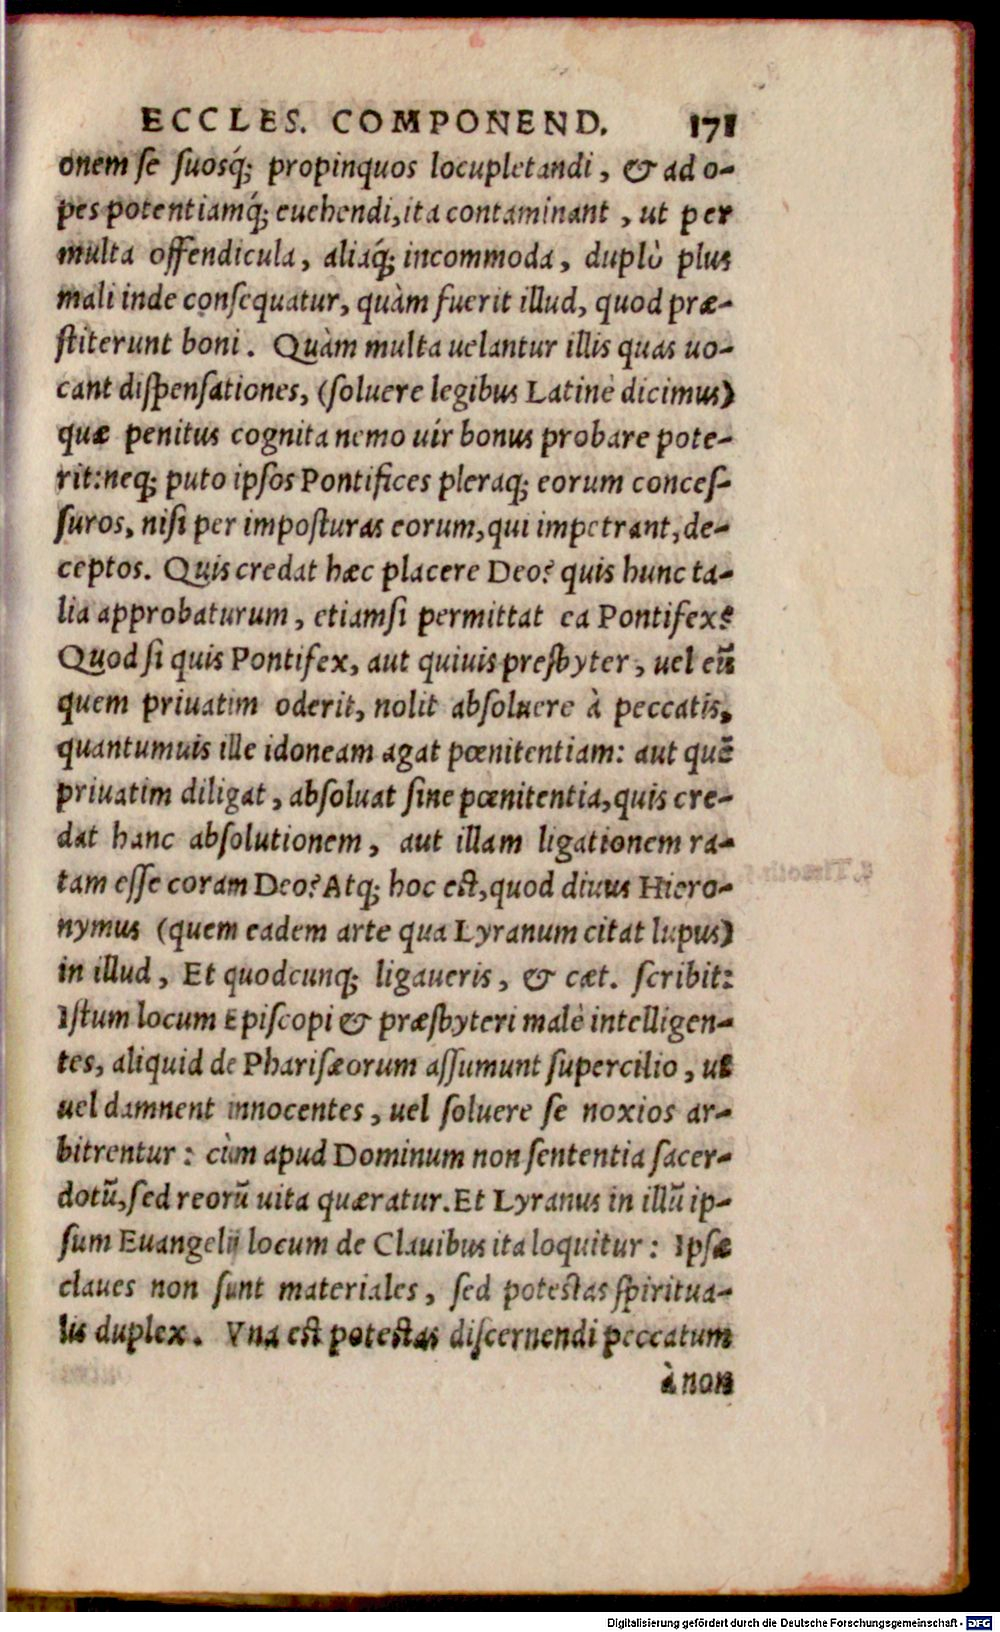 ECCLES. COMPONEND. 171
onem se suosq́; propinquos locupletandi, & ad o-
pes potentiamq́; euehendi, ita contaminant, ut per
multa offendicula, aliaq́; incommoda, duplò plus
mali inde consequatur, quàm fuerit illud, quod præ-
stiterunt boni. Quàm multa uelantur illis quas uo-
cant dispensationes, (soluere legibus Latinè dicimus)
quæ penitus cognita nemo uir bonus probare pote-
rit: neq; puto ipsos Pontifices pleraq; eorum conces-
suros, nisi per imposturas eorum, qui impetrant, de-
ceptos. Quis credat hæc placere Deo? quis hunc ta-
lia approbaturum, etiamsi permittat ea Pontifex?
Quod si quis Pontifex, aut quiuis presbyter, uel eū
quem priuatim oderit, nolit absoluere à peccatis,
quantumuis ille idoneam agat pœnitentiam: aut quē
priuatim diligat, absoluat sine pœnitentia, quis cre-
dat hanc absolutionem, aut illam ligationem ra-
tam esse coram Deo? Atq; hoc est, quod diuus Hiero-
nymus (quem eadem arte qua Lyranum citat lupus)
in illud, Et quodcunq; ligaueris, & cæt. scribit:
Istum locum Episcopi & præsbyteri malè intelligen-
tes, aliquid de Pharisæorum assumunt supercilio, ut
uel damnent innocentes, uel soluere se noxios ar-
bitrentur: cùm apud Dominum non sententia sacer-
dotū, sed reorū uita quæratur. Et Lyranus in illū ip-
sum Euangelij locum de Clauibus ita loquitur: Ipsæ
claues non sunt materiales, sed potestas spiritua-
lis duplex. Vna est potestas discernendi peccatum
à non
Digitalisierung gefördert durch die Deutsche Forschungsgemeinschaft - DFG